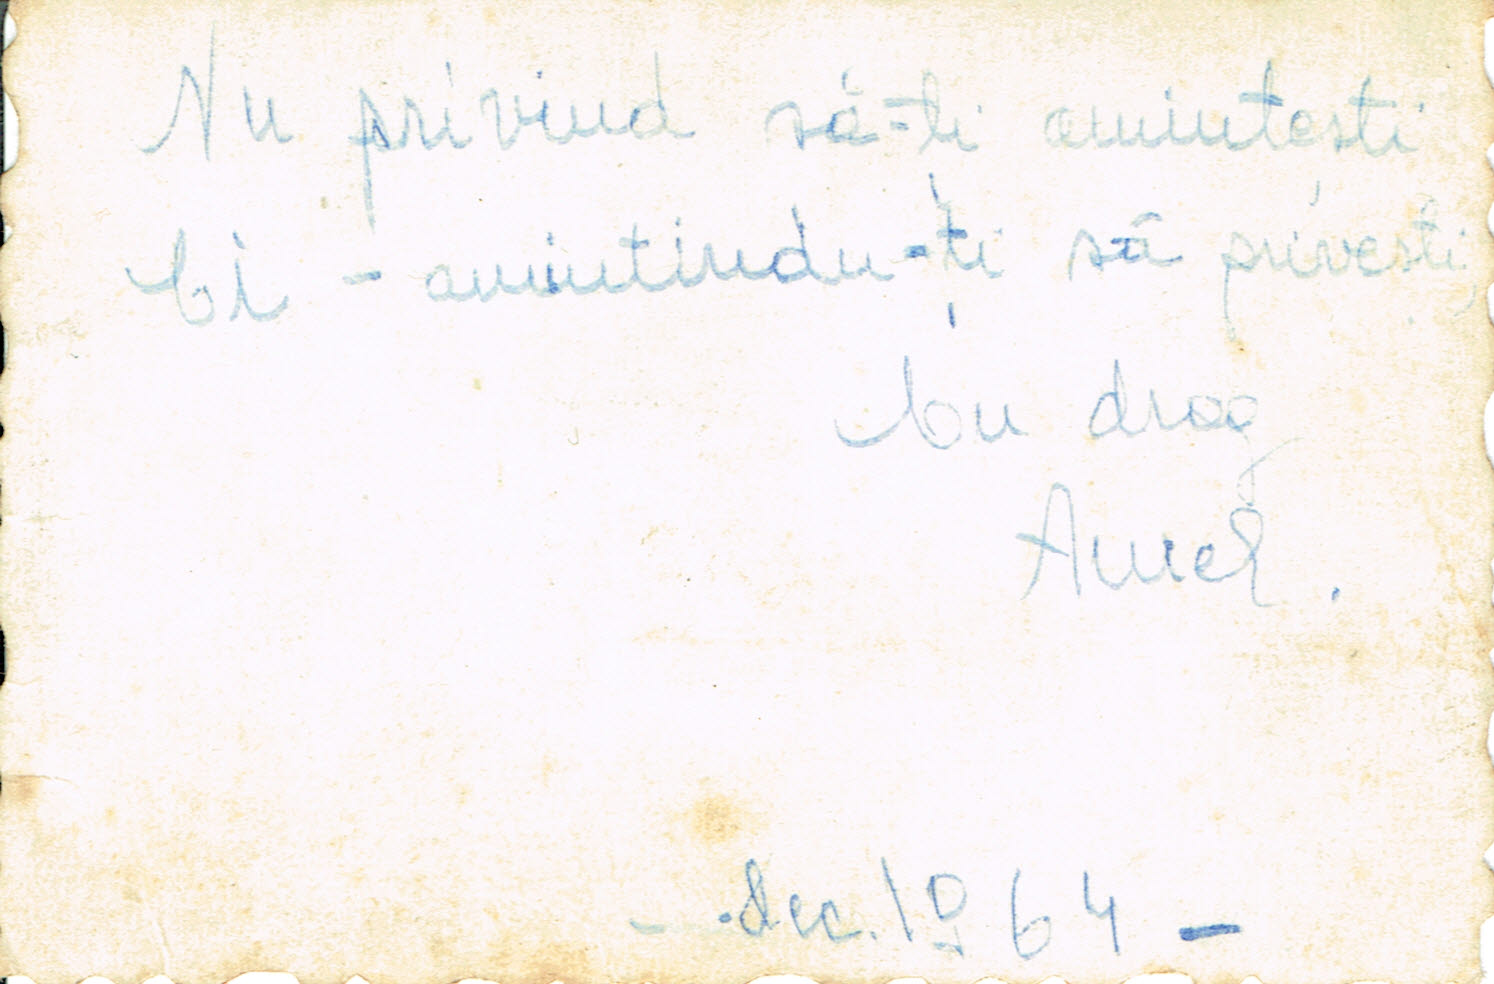 Nu privind să-ti amintesti
Ci - amintindu-ți să privesti,
Cu drag
Aurel.
- dec. 1964 -